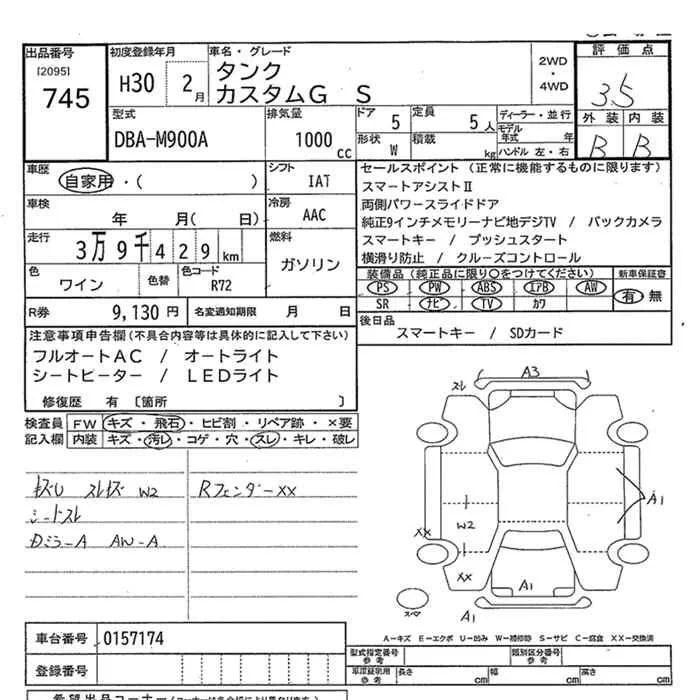 出品番号 初度登録年月 車名・グレード 2WD・4WD 評価点
[2095] 745 H30 2月 タンク カスタムG S 3.5
型式 排気量 ドア 5 定員 5人 ディーラー・並行 外装 内装
DBA-M900A 1000cc 形状 W 積載 kg モデル年式 年 ハンドル 左・右 B B
車歴 自家用・( ) シフト IAT セールスポイント(正常に機能するものに限ります)
スマートアシストⅡ
車検 年 月( 日) 冷房 AAC 両側パワースライドドア
純正9インチメモリーナビ地デジTV / バックカメラ
走行 3万9千429km 燃料 ガソリン スマートキー / プッシュスタート
横滑り防止 / クルーズコントロール
色 ワイン 色替 色コード R72 装備品(純正品に限り○をつけてください) 新車保証書
PS PW ABS エアB AW 有・無
SR ナビ TV カワ
R券 9,130円 名変通知期限 月 日 後日品
スマートキー / SDカード
注意事項申告欄(不具合内容等は具体的に記入して下さい)
フルオートAC / オートライト
シートヒーター / LEDライト
修復歴 有 〔箇所 〕
検査員 FW キズ・飛石・ヒビ割・リペア跡・×要
記入欄 内装 キズ・汚レ・コゲ・穴・スレ・キレ・破レ
W2 RフェンダーXX
シートスレ
ミラーA AW-A
スレ A3
A1
XX W2
XX A1
スペア A1
A-キズ E-エクボ U-凹み W-補修跡 S-サビ C-腐食 XX-交換済
車台番号 0157174
型式指定番号 参考 類別区分番号 参考
登録番号 参考 長さ cm 幅 cm 高さ cm
希望出品コーナー